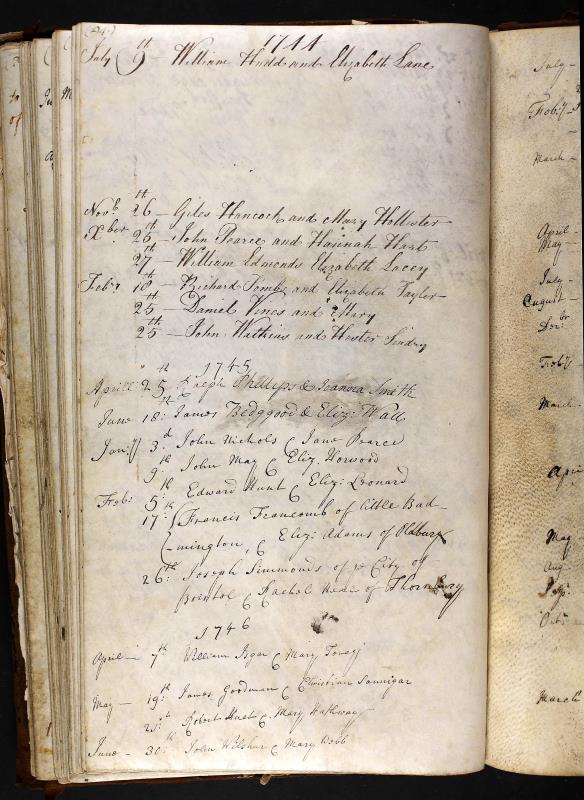 1744
July 9th – William Hudd and Elizabeth Lane
Novbr 26th – Giles Hancock and Mary Hollister
Xber 25th – John Pearce and Hannah Hart
27th – William Edmonds Elizabeth Lacey
Feb:y 18th – Richard Tombs and Elizabeth Taylor
25th – Daniel Vines and Mary
25th – John Watkins and Hester
1745
Aprill 25th Ralph Phillips & Smith
June 18th: James Bedggood & Eliz: Wall
Jan:ry 3d John Nichols & Jane Pearce
9th: John May & Eliz. Horwood
Feb: 5th Edward Hunt & Eliz: Leonard
17th: Francis of little Bad-
-mington, & Eliz: Adams of
26th: Joseph Simmonds of ye City of
Bristol & Rachel of Thornbury
1746
April – 7th William & Mary
May – 19th: James Goodman & Christian
Robert & Mary Hathway
June – 30th: John & Mary Cobb
July –
March –
April –
May –
July –
August –
March –
May
Aug
March